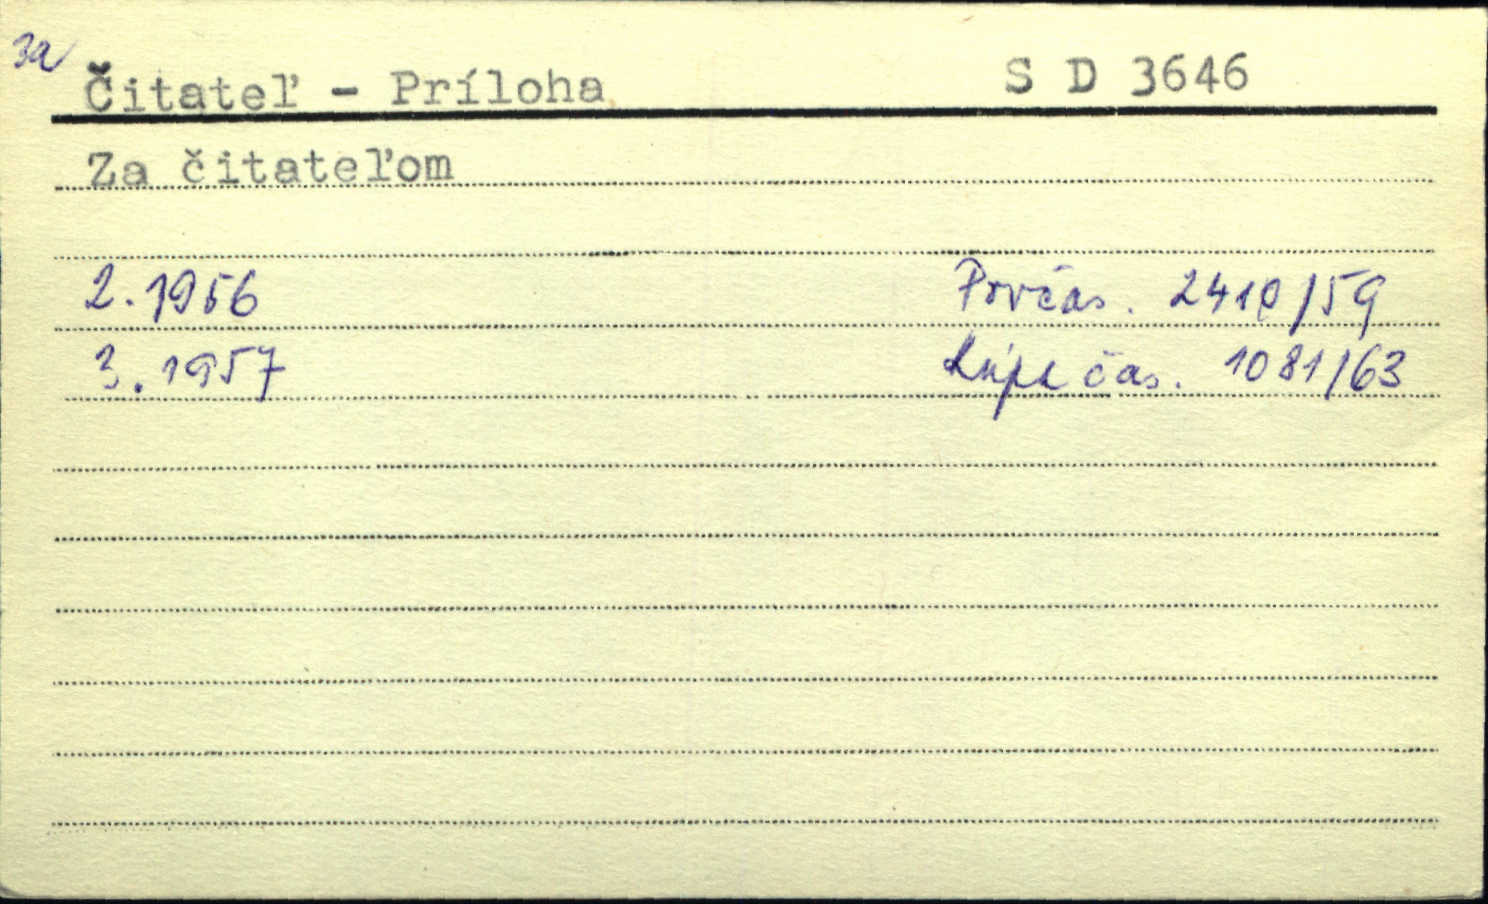 3a
Čitateľ - Príloha S D 3646
Za čitateľom
2.1956 Povčas. 2410/59
3.1957 Kúpa čas. 1081/63